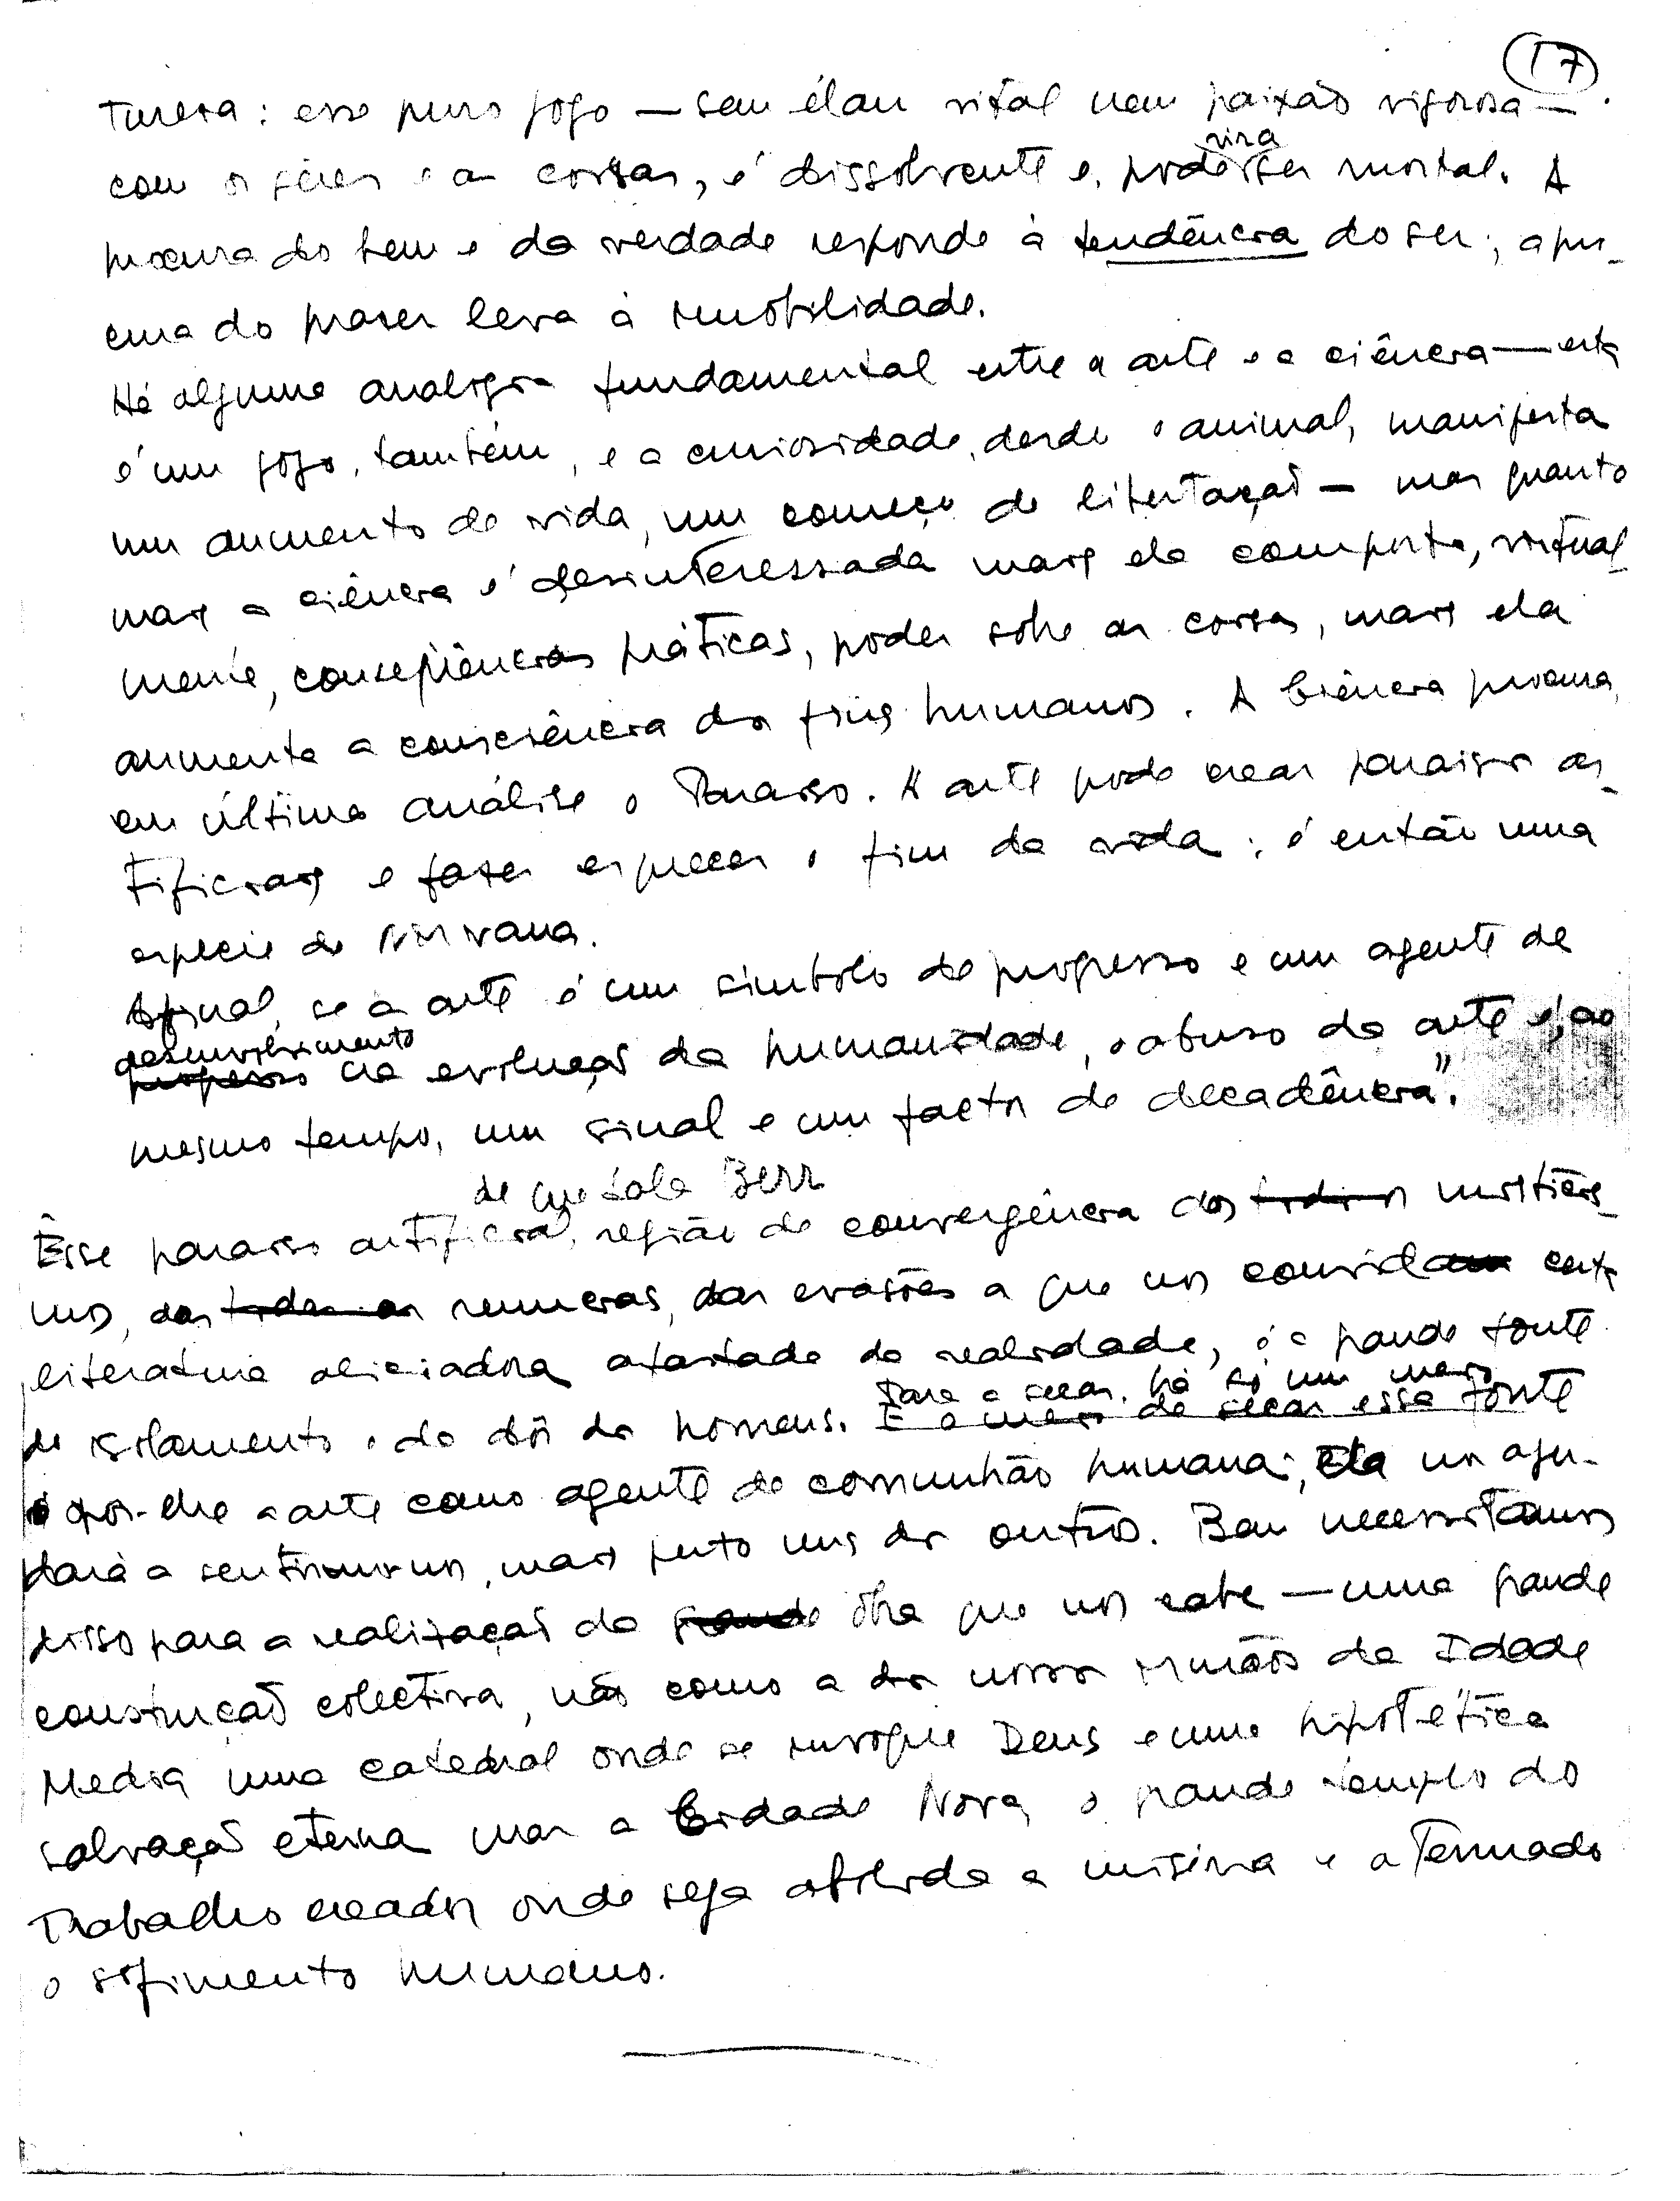 17
tureza: esse puro jogo — sem élan vital nem paixão vigorosa —
com os seres e as coisas, é dissolvente e, poderia ser mortal. A
procura do bem e da verdade responde à tendência do ser; a pro-
cura do prazer leva à imobilidade.
Há alguma analogia fundamental entre a arte e a ciência — esta
é um jogo, também, e a curiosidade, desde o animal, manifesta
um aumento de vida, um começo de libertação — mas quanto
mais a ciência é desinteressada mais ela comporta, virtual-
mente, conseqüências práticas, poder sobre as coisas, mais ela
aumenta a consciência dos fins humanos. A Ciência procura,
em última análise o Paraíso. A arte pode crear paraisos ar-
tificiais e fazer esquecer o fim da vida: é então uma
espécie de Nirvana.
Afinal, se a arte é um símbolo de progresso e um agente de
desenvolvimento
progresso na evolução da humanidade, o abuso da arte é, ao
mesmo tempo, um sinal e um factor de decadência".
de que fala Berr
Êsse paraiso artificial, região de convergência dos todos os misticis-
mos, das todas as renuncias, das evasões a que nos convidam certa
literatura aliciadora afastada da realidade, é a grande fonte
Para a secar, há só um meio
de isolamento e de dôr dos homens. E o meio de secar essa fonte
é opôr-lhe a arte como agente de comunhão humana; Ela nos aju-
dará a sentirmo-nos, mais perto uns dos outros. Bem necessitamos
disso para a realização da grande obra que nos cabe — uma grande
construção colectiva, não como a dos nossos irmãos da Idade
Media uma catedral onde se invoque Deus e uma hipotética
salvação eterna mas a Cidade Nova, o grande templo do
Trabalho creador onde seja abolida a miséria e atenuado
o sofrimento humano.